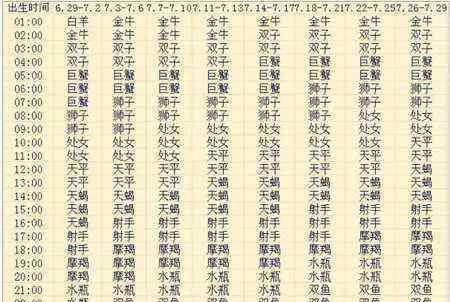 出生时间 6.29-7.2 7.3-7.6 7.7-7.10 7.11-7.13 7.14-7.17 7.18-7.21 7.22-7.25 7.26-7.29
01:00 白羊 金牛 金牛 金牛 金牛 金牛 金牛 金牛
02:00 金牛 金牛 金牛 金牛 双子 双子 双子 双子
03:00 双子 双子 双子 双子 双子 双子 双子 双子
04:00 双子 双子 双子 双子 巨蟹 巨蟹 巨蟹 巨蟹
05:00 巨蟹 巨蟹 巨蟹 巨蟹 巨蟹 巨蟹 巨蟹 巨蟹
06:00 巨蟹 巨蟹 巨蟹 巨蟹 巨蟹 狮子 狮子 狮子
07:00 巨蟹 狮子 狮子 狮子 狮子 狮子 狮子 狮子
08:00 狮子 狮子 狮子 狮子 狮子 处女 处女 处女
09:00 狮子 狮子 处女 处女 处女 处女 处女 处女
10:00 处女 处女 处女 处女 处女 处女 处女 天平
11:00 处女 处女 处女 天平 天平 天平 天平 天平
12:00 天平 天平 天平 天平 天平 天平 天平 天蝎
13:00 天平 天平 天平 天蝎 天蝎 天蝎 天蝎 天蝎
14:00 天蝎 天蝎 天蝎 天蝎 天蝎 天蝎 天蝎 天蝎
15:00 天蝎 天蝎 天蝎 天蝎 天蝎 射手 射手 射手
16:00 天蝎 射手 射手 射手 射手 射手 射手 射手
17:00 射手 射手 射手 射手 射手 射手 摩羯 摩羯
18:00 射手 摩羯 摩羯 摩羯 摩羯 摩羯 摩羯 摩羯
19:00 摩羯 摩羯 摩羯 摩羯 摩羯 水瓶 水瓶 水瓶
20:00 摩羯 摩羯 水瓶 水瓶 水瓶 水瓶 水瓶 水瓶
21:00 水瓶 水瓶 水瓶 水瓶 水瓶 双鱼 双鱼 双鱼